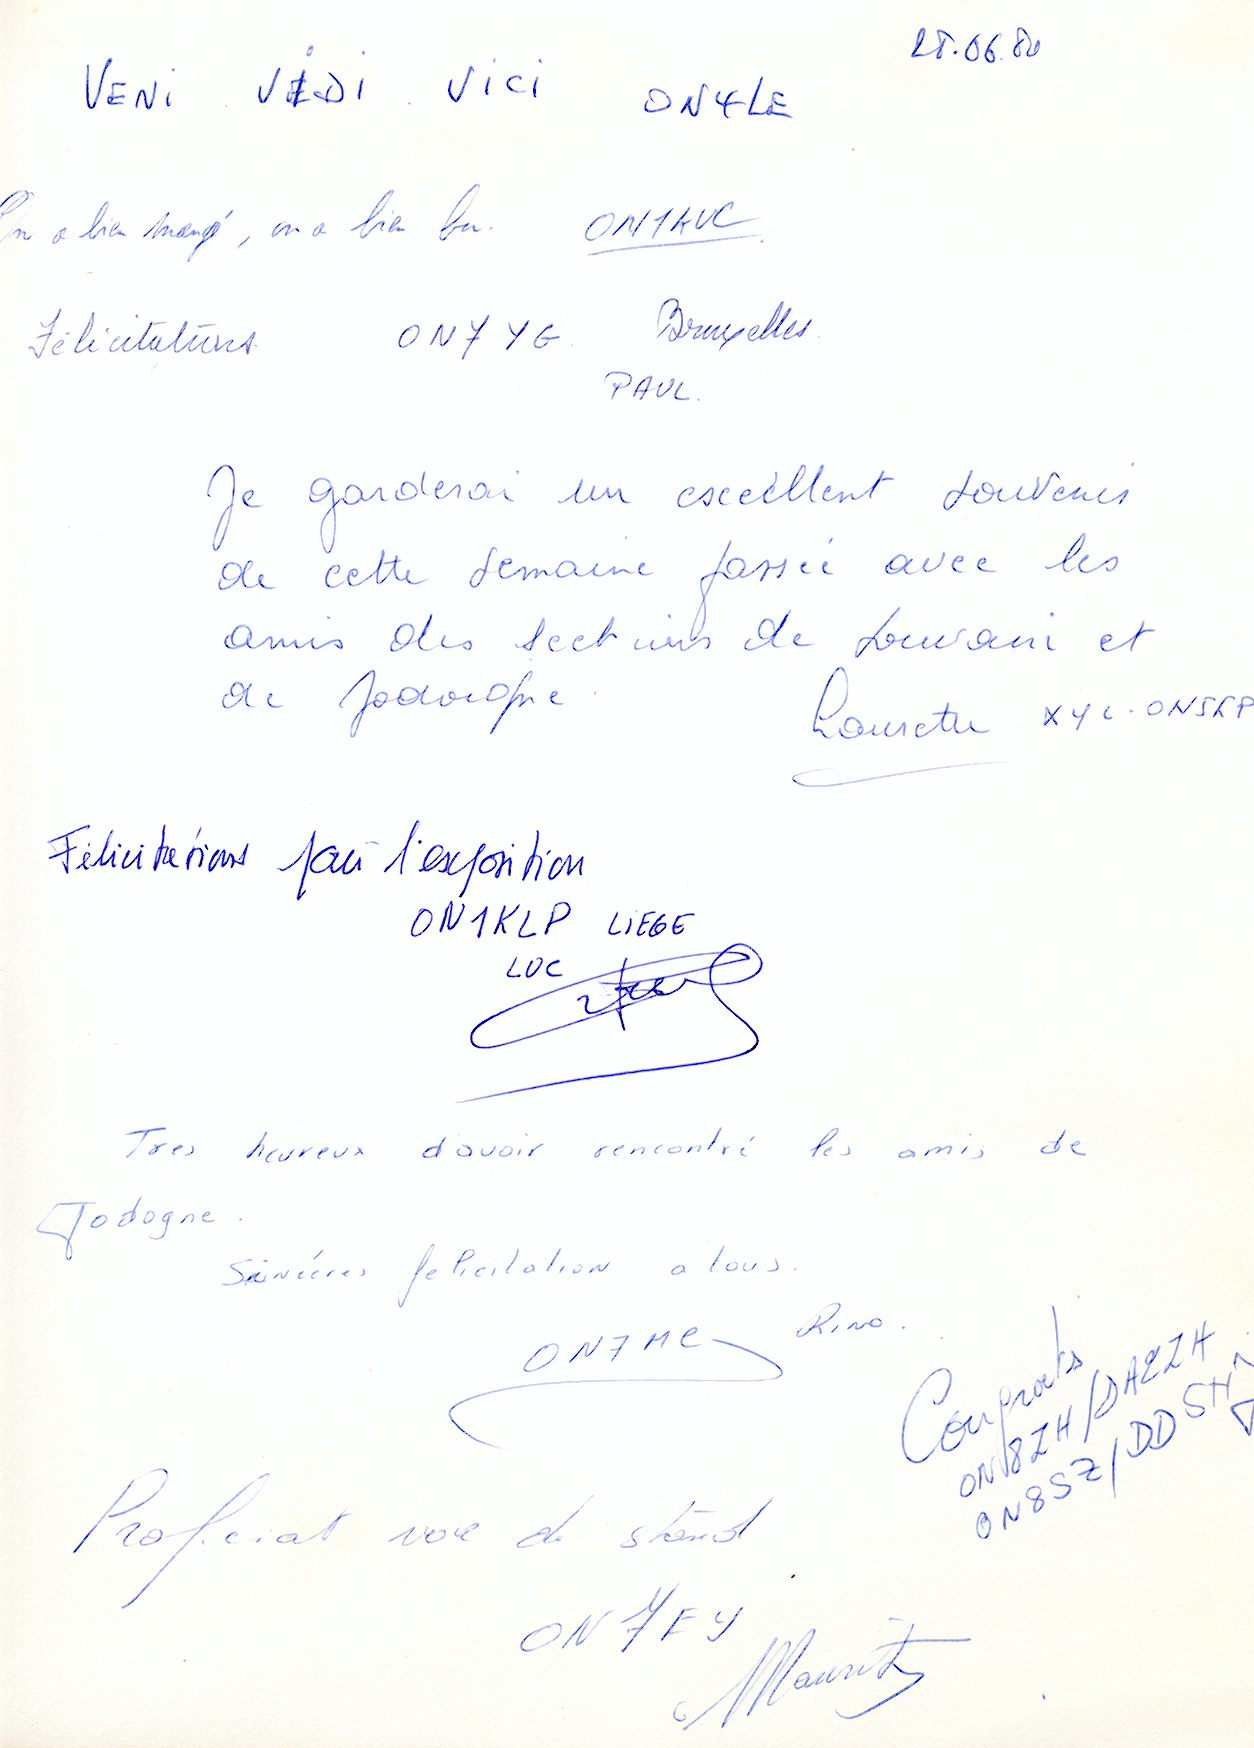 28.06.80
VENI VIDI VICI ON4LE
On a bien mangé, on a bien bu. ON1KVC
Félicitations ON7YG Bruxelles
PAUL.
Je garderai un excellent souvenir
de cette semaine passée avec les
amis des sections de Louvain et
de Jodoigne.
Laurette XYL-ON5KP
Félicitations pour l'exposition
ON1KLP LIEGE
LUC
Tres heureux d'avoir rencontré les amis de
Jodogne.
Sincères felicitation a tous.
ON7MC Rino.
Congrats
ON8ZH/DA2ZH
ON8SZ/DD5HZ
Proficiat voor de stand
ON7EY
Maurits